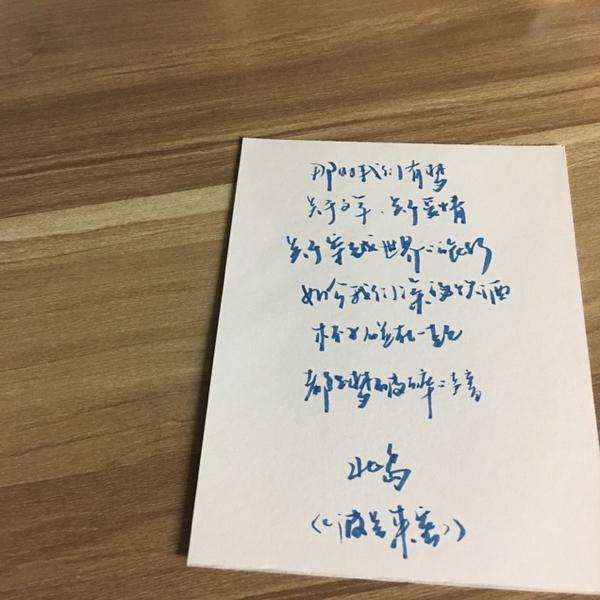 那时我们有梦
关于文学，关于爱情
关于穿越世界的旅行
如今我们深夜饮酒
杯子碰在一起
都是梦破碎的声音
北岛
《波兰来客》